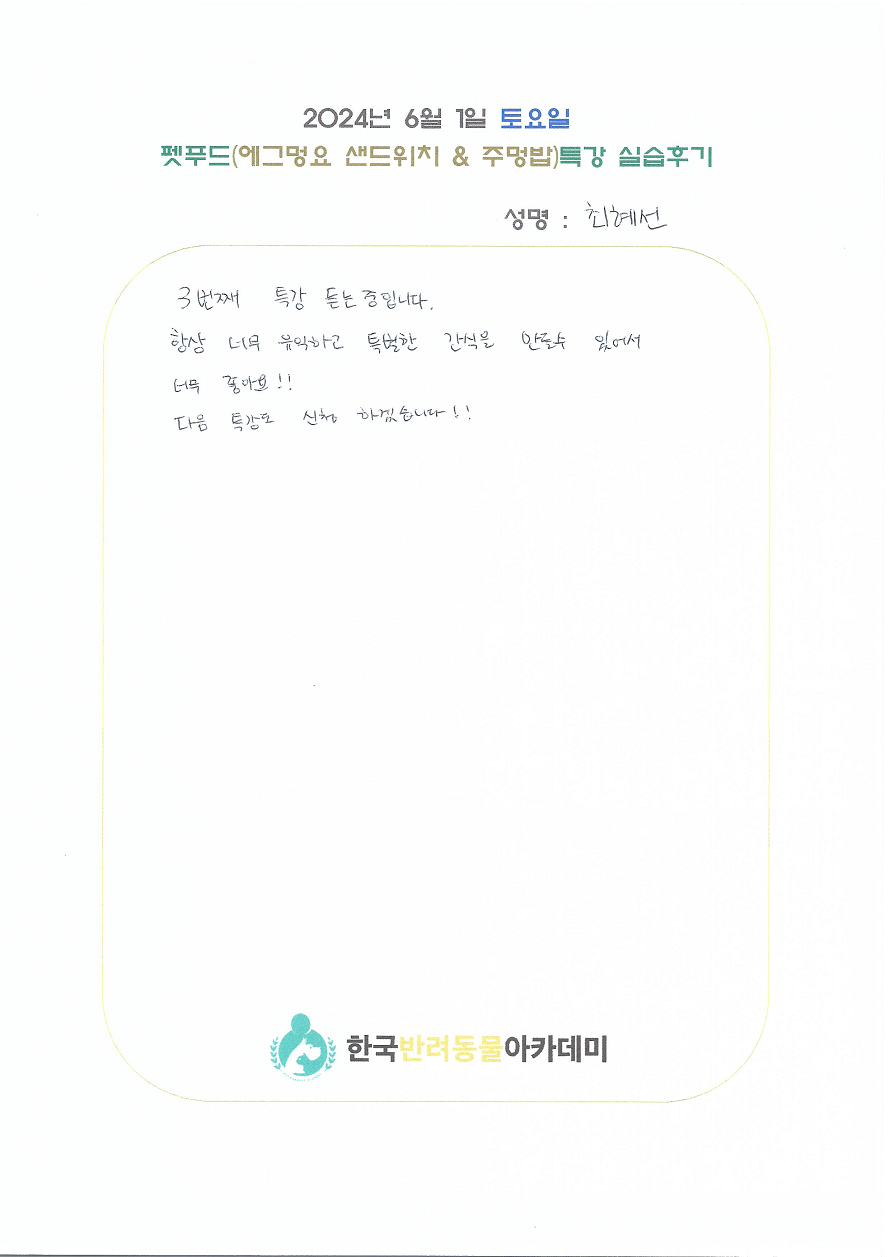 2024년 6월 1일 토요일
펫푸드(에그멍요 샌드위치 & 주멍밥)특강 실습후기
성명 : 최혜선
3번째 특강 듣는중입니다.
항상 너무 유익하고 특별한 간식을 만들수 있어서
너무 좋아요!!
다음 특강도 신청 하겠습니다!!
한국반려동물아카데미